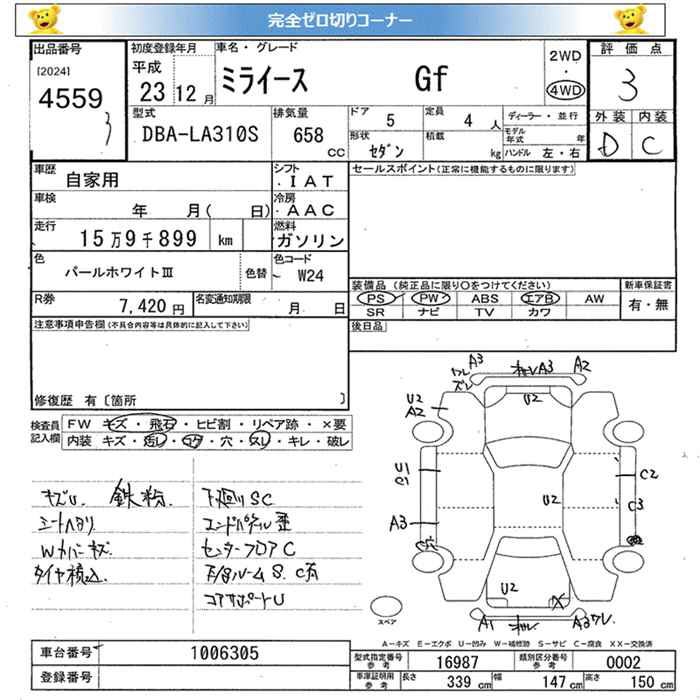 完全ゼロ切りコーナー
出品番号
[2024]
4559
3
初度登録年月
平成
23年12月
車名・グレード
ミライース Gf
2WD
・
4WD
評価点
3
外装 内装
D C
型式
DBA-LA310S
排気量
658
CC
ドア 5
形状 セダン
定員 4人
積載 kg
ディーラー・並行
モデル年式 年
ハンドル 左・右
車歴 自家用
シフト
・IAT
車検 年 月( 日)
冷房
・AAC
走行 15万9千899 km
燃料
ガソリン
色 パールホワイトⅢ 色替
色コード
W24
R券 7,420円
名変通知期限 月 日
セールスポイント(正常に機能するものに限ります)
装備品(純正品に限り○をつけてください)
PS PW ABS エアB AW
SR ナビ TV カワ
新車保証書
有・無
後日品
注意事項申告欄(不具合内容等は具体的に記入して下さい)
修復歴 有〔箇所 〕
検査員記入欄
FW キズ・飛石・ヒビ割・リペア跡・×要
内装 キズ・汚レ・コゲ・穴・スレ・キレ・破レ
キズU. 鉄粉
シートヘタリ
Wカバーキズ
タイヤ積込
下廻りSC
エンドパネル歪
センターフロアC
コアサポートU
A3 A3 A2
U2
A2
U2
U1
C1
A3
穴
U2
C2
C3
U2
X
A1
A3ワレ
スペア
A-キズ E-エクボ U-凹み W-補修跡 S-サビ C-腐食 XX-交換済
車台番号 1006305
登録番号
型式指定番号 参考 16987
類別区分番号 参考 0002
車庫証明用 参考 長さ 339cm 幅 147cm 高さ 150cm